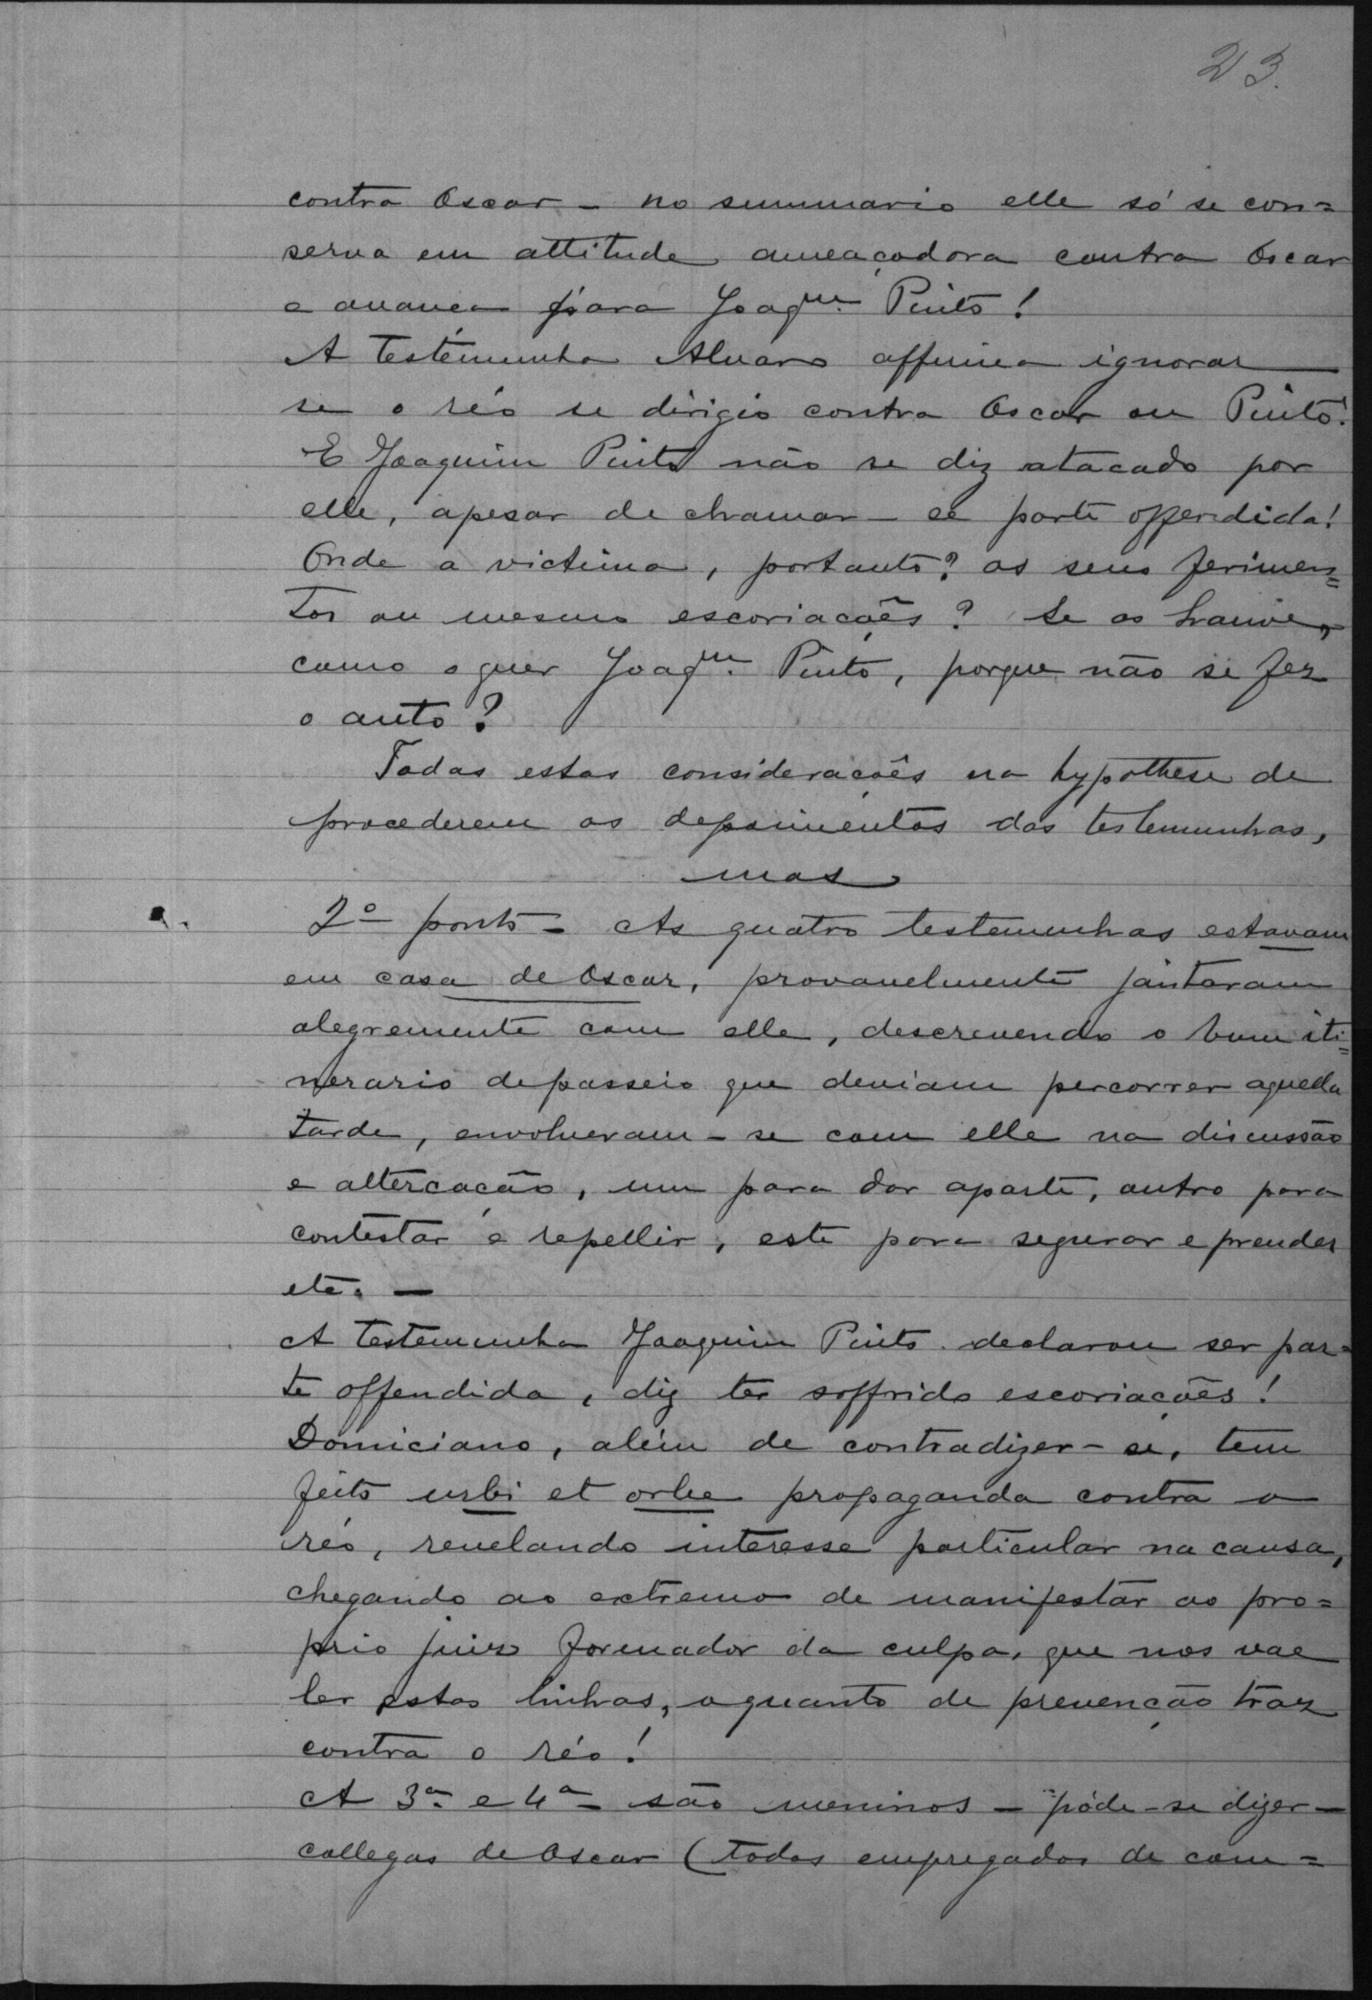 23.
contra Oscar - no summario elle só se con=
serva em attitude ameaçadora contra Oscar
e avança para Joaqm. Pinto!
A testemunha Alvaro affirma ignorar
se o réo se dirigio contra Oscar ou Pinto!
E Joaquim Pinto não se diz atacado por
elle, apesar de chamar-se parte offendida!
Onde a victima, portanto? os seus ferimen=
tos ou mesmo escoriações? Se os houve,
como o quer Joaqm. Pinto, porque não se fez
o auto?
Todas estas considerações na hypothese de
procederem os depoimentos das testemunhas,
mas
2º ponto - As quatro testemunhas estavam
em casa de Oscar, provavelmente jantaram
alegremente com elle, descrevendo o bom iti=
nerario de passeio que deviam percorrer aquella
tarde, envolveram-se com elle na discussão
e altercação, um para dar aparte, outro para
contestar e repellir, este para segurar e prender
etc. -
A testemunha Joaquim Pinto declarou ser par=
te offendida, diz ter soffrido escoriações!
Domiciano, além de contradizer-se, tem
feito urbi et orbe propaganda contra o
réo, revelando interesse particular na causa,
chegando ao extremo de manifestar ao pro=
prio juiz formador da culpa, que nos vae
ler estas linhas, o quanto de prevenção traz
contra o réo!
A 3ª e 4ª são meninos - póde-se dizer -
collegas de Oscar (todos empregados de com=